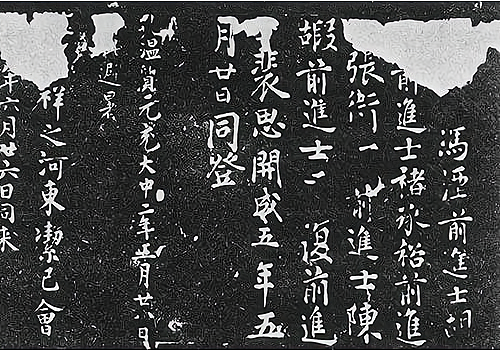 馮涯前進士胡
前進士褚承裕前進
張衛一前進士陳
嘏前進士一復前進
裴思開成五年五
月廿日同登
溫質元充大中二年五月廿八日
避暑
祥之河東潔己會
年六月廿六日同来